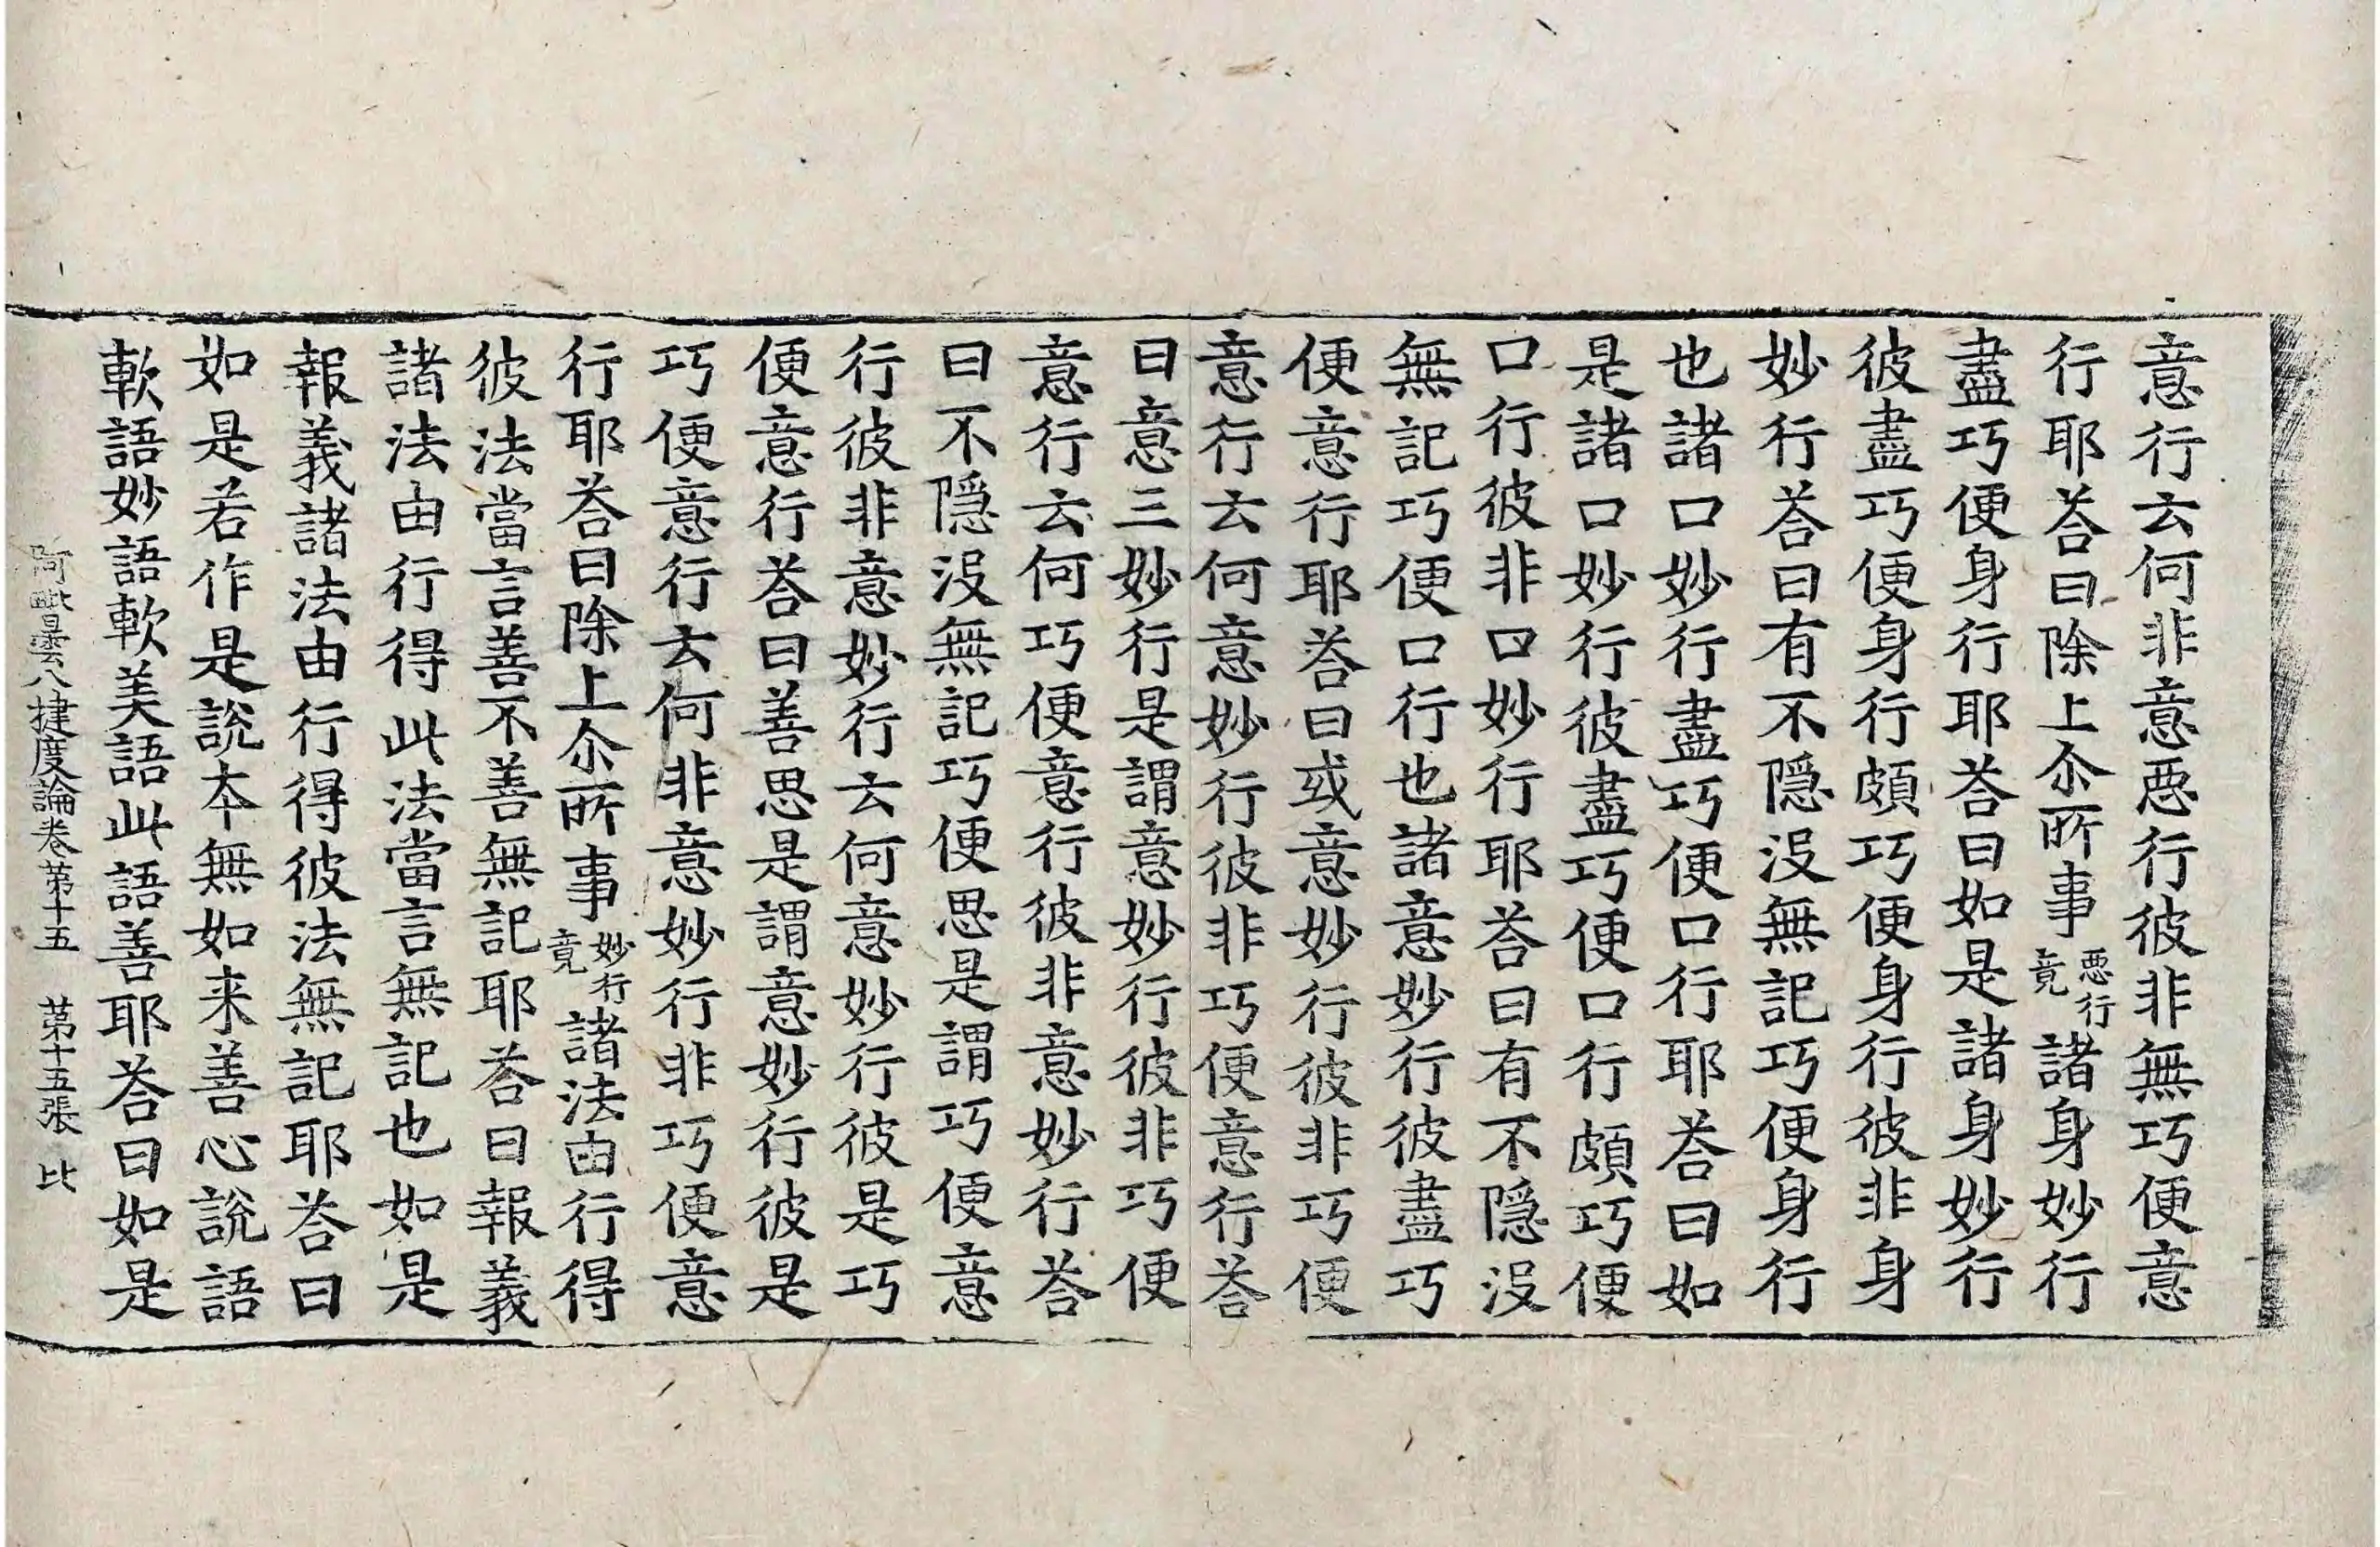 意行云何非意惡行彼非無巧便意
行耶荅曰除上尒所事惡行竟諸身妙行
盡巧便身行耶荅曰如是諸身妙行
彼盡巧便身行頗巧便身行彼非身
妙行荅曰有不隱沒無記巧便身行
也諸口妙行盡巧便口行耶荅曰如
是諸口妙行彼盡巧便口行頗巧便
口行彼非口妙行耶荅曰有不隱沒
無記巧便口行也諸意妙行彼盡巧
便意行耶荅曰或意妙行彼非巧便
意行云何意妙行彼非巧便意行荅
曰意三妙行是謂意妙行彼非巧便
意行云何巧便意行彼非意妙行荅
曰不隱沒無記巧便思是謂巧便意
行彼非意妙行云何意妙行彼是巧
便意行荅曰善思是謂意妙行彼是
巧便意行云何非意妙行非巧便意
行耶荅曰除上尒所事妙行竟諸法由行得
彼法當言善不善無記耶荅曰報義
諸法由行得此法當言無記也如是
報義諸法由行得彼法無記耶荅曰
如是若作是說本無如来善心說語
軟語妙語軟美語此語善耶荅曰如是
阿毗曇八揵度論卷第十五 第十五張 比